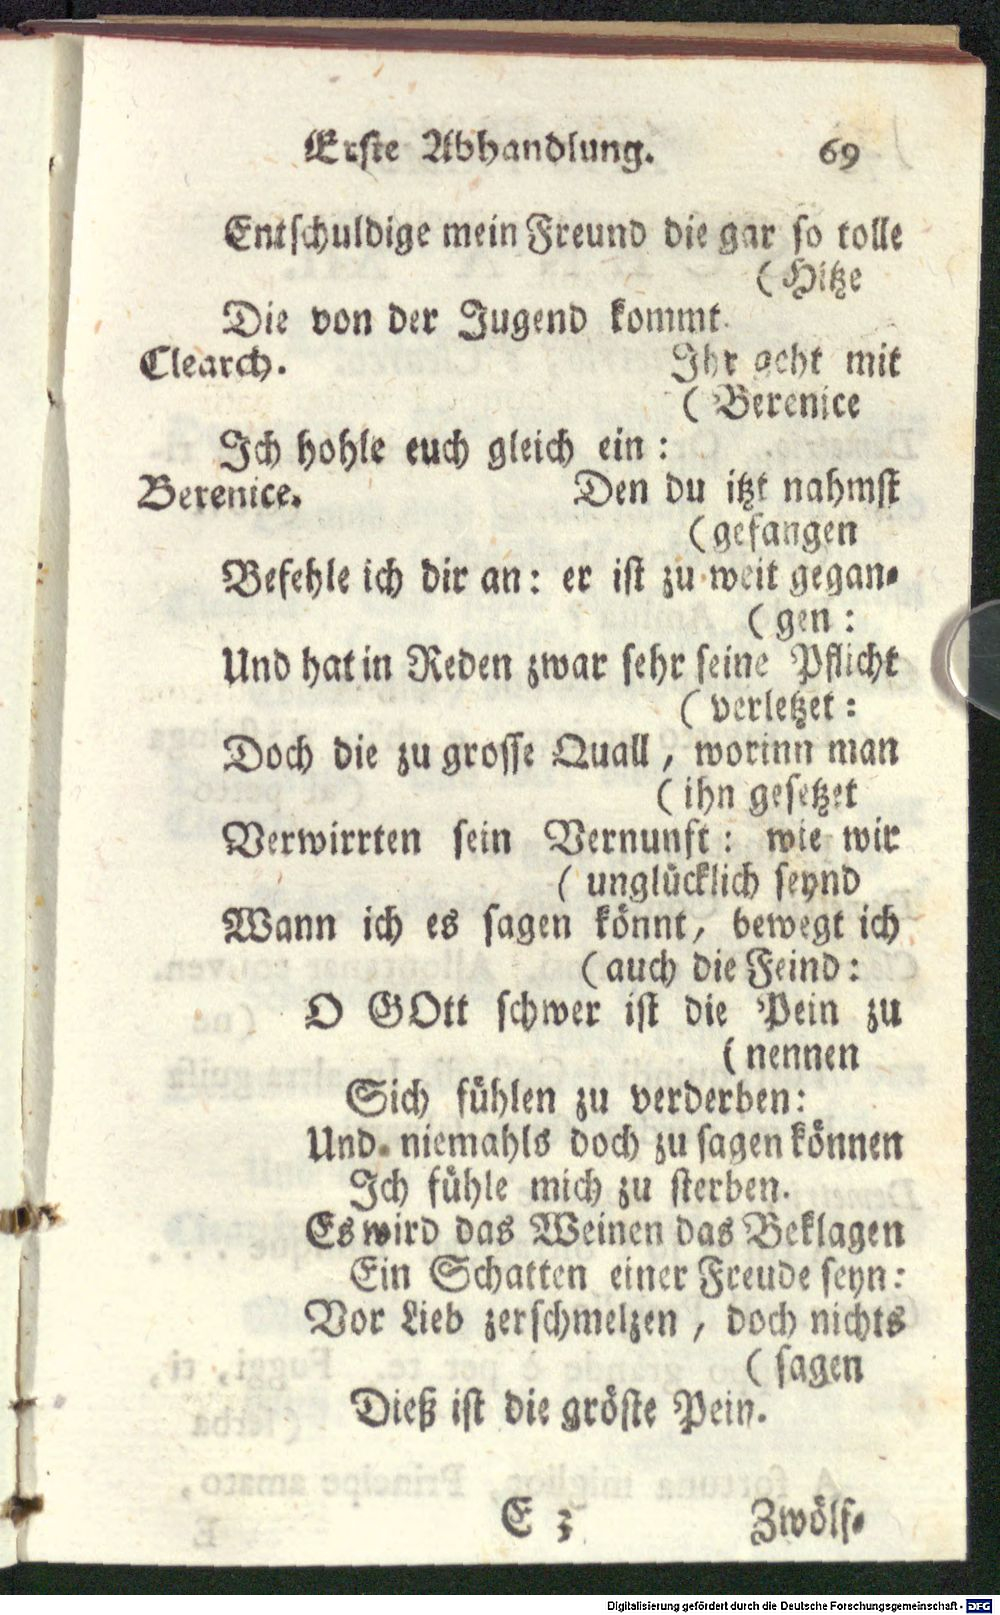 Erste Abhandlung. 69
Entschuldige mein Freund die gar so tolle
(Hitze
Die von der Jugend kommt.
Clearch. Ihr geht mit
(Berenice
Ich hohle euch gleich ein:
Berenice. Den du itzt nahmst
(gefangen
Befehle ich dir an: er ist zu weit gegan-
(gen:
Und hat in Reden zwar sehr seine Pflicht
(verletzet:
Doch die zu grosse Quall, worinn man
(ihn gesetzet
Verwirrten sein Vernunft: wie wir
(unglücklich seynd
Wann ich es sagen könnt, bewegt ich
(auch die Feind:
O GOtt schwer ist die Pein zu
(nennen
Sich fühlen zu verderben:
Und niemahls doch zu sagen können
Ich fühle mich zu sterben.
Es wird das Weinen das Beklagen
Ein Schatten einer Freude seyn:
Vor Lieb zerschmelzen, doch nichts
(sagen
Dieß ist die gröste Pein.
E 3 Zwölf-
Digitalisierung gefördert durch die Deutsche Forschungsgemeinschaft - DFG